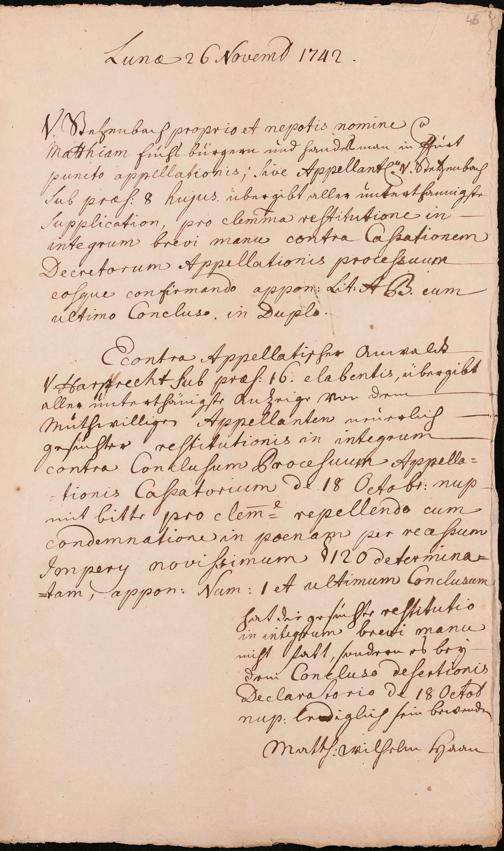 46
Lunæ 26 Novemb 1742.
V. Stetzenbach proprio et nepotis nomine C⁠a
Matthiam fuchs bürgern und handelsman in
puncto appellationis; sive Appellant: V. Stetzenbach
sub præs: 8 hujus. übergibt aller unterthänigste
supplication, pro clemma restitutione in
integrum brevi manu contra Cassationem
Decretorum Appellationis processuum
eosque confirmando appon: Lit: A B. cum
ultimo Concluso. in Duplo.
Econtra Appellatischer Anwaldt
V. Harpprecht sub præs: 16. elabentis, übergibt
aller unterthänigste Anzeige von dem
Muthwilligen Appellanten neuerlich
gesuchter restitutionis in integrum
contra Conclusum Processuum Appella-
-tionis Cassatorium de 18 Octobr: nup
mit bitte pro clem̄e repellendo cum
condemnatione in poenam per recessum
Imperij novissimum § 120 determina-
-tam, appon: Num: 1 et ultimum Conclusum
hat die gesuchte restitutio
in integrum brevi manu
nicht statt, sondern es bey
dem Concluso desertionis
Declaratorio de 18 Octob
nup: lediglich sein bewenden
Matth: Wilhelm Haan